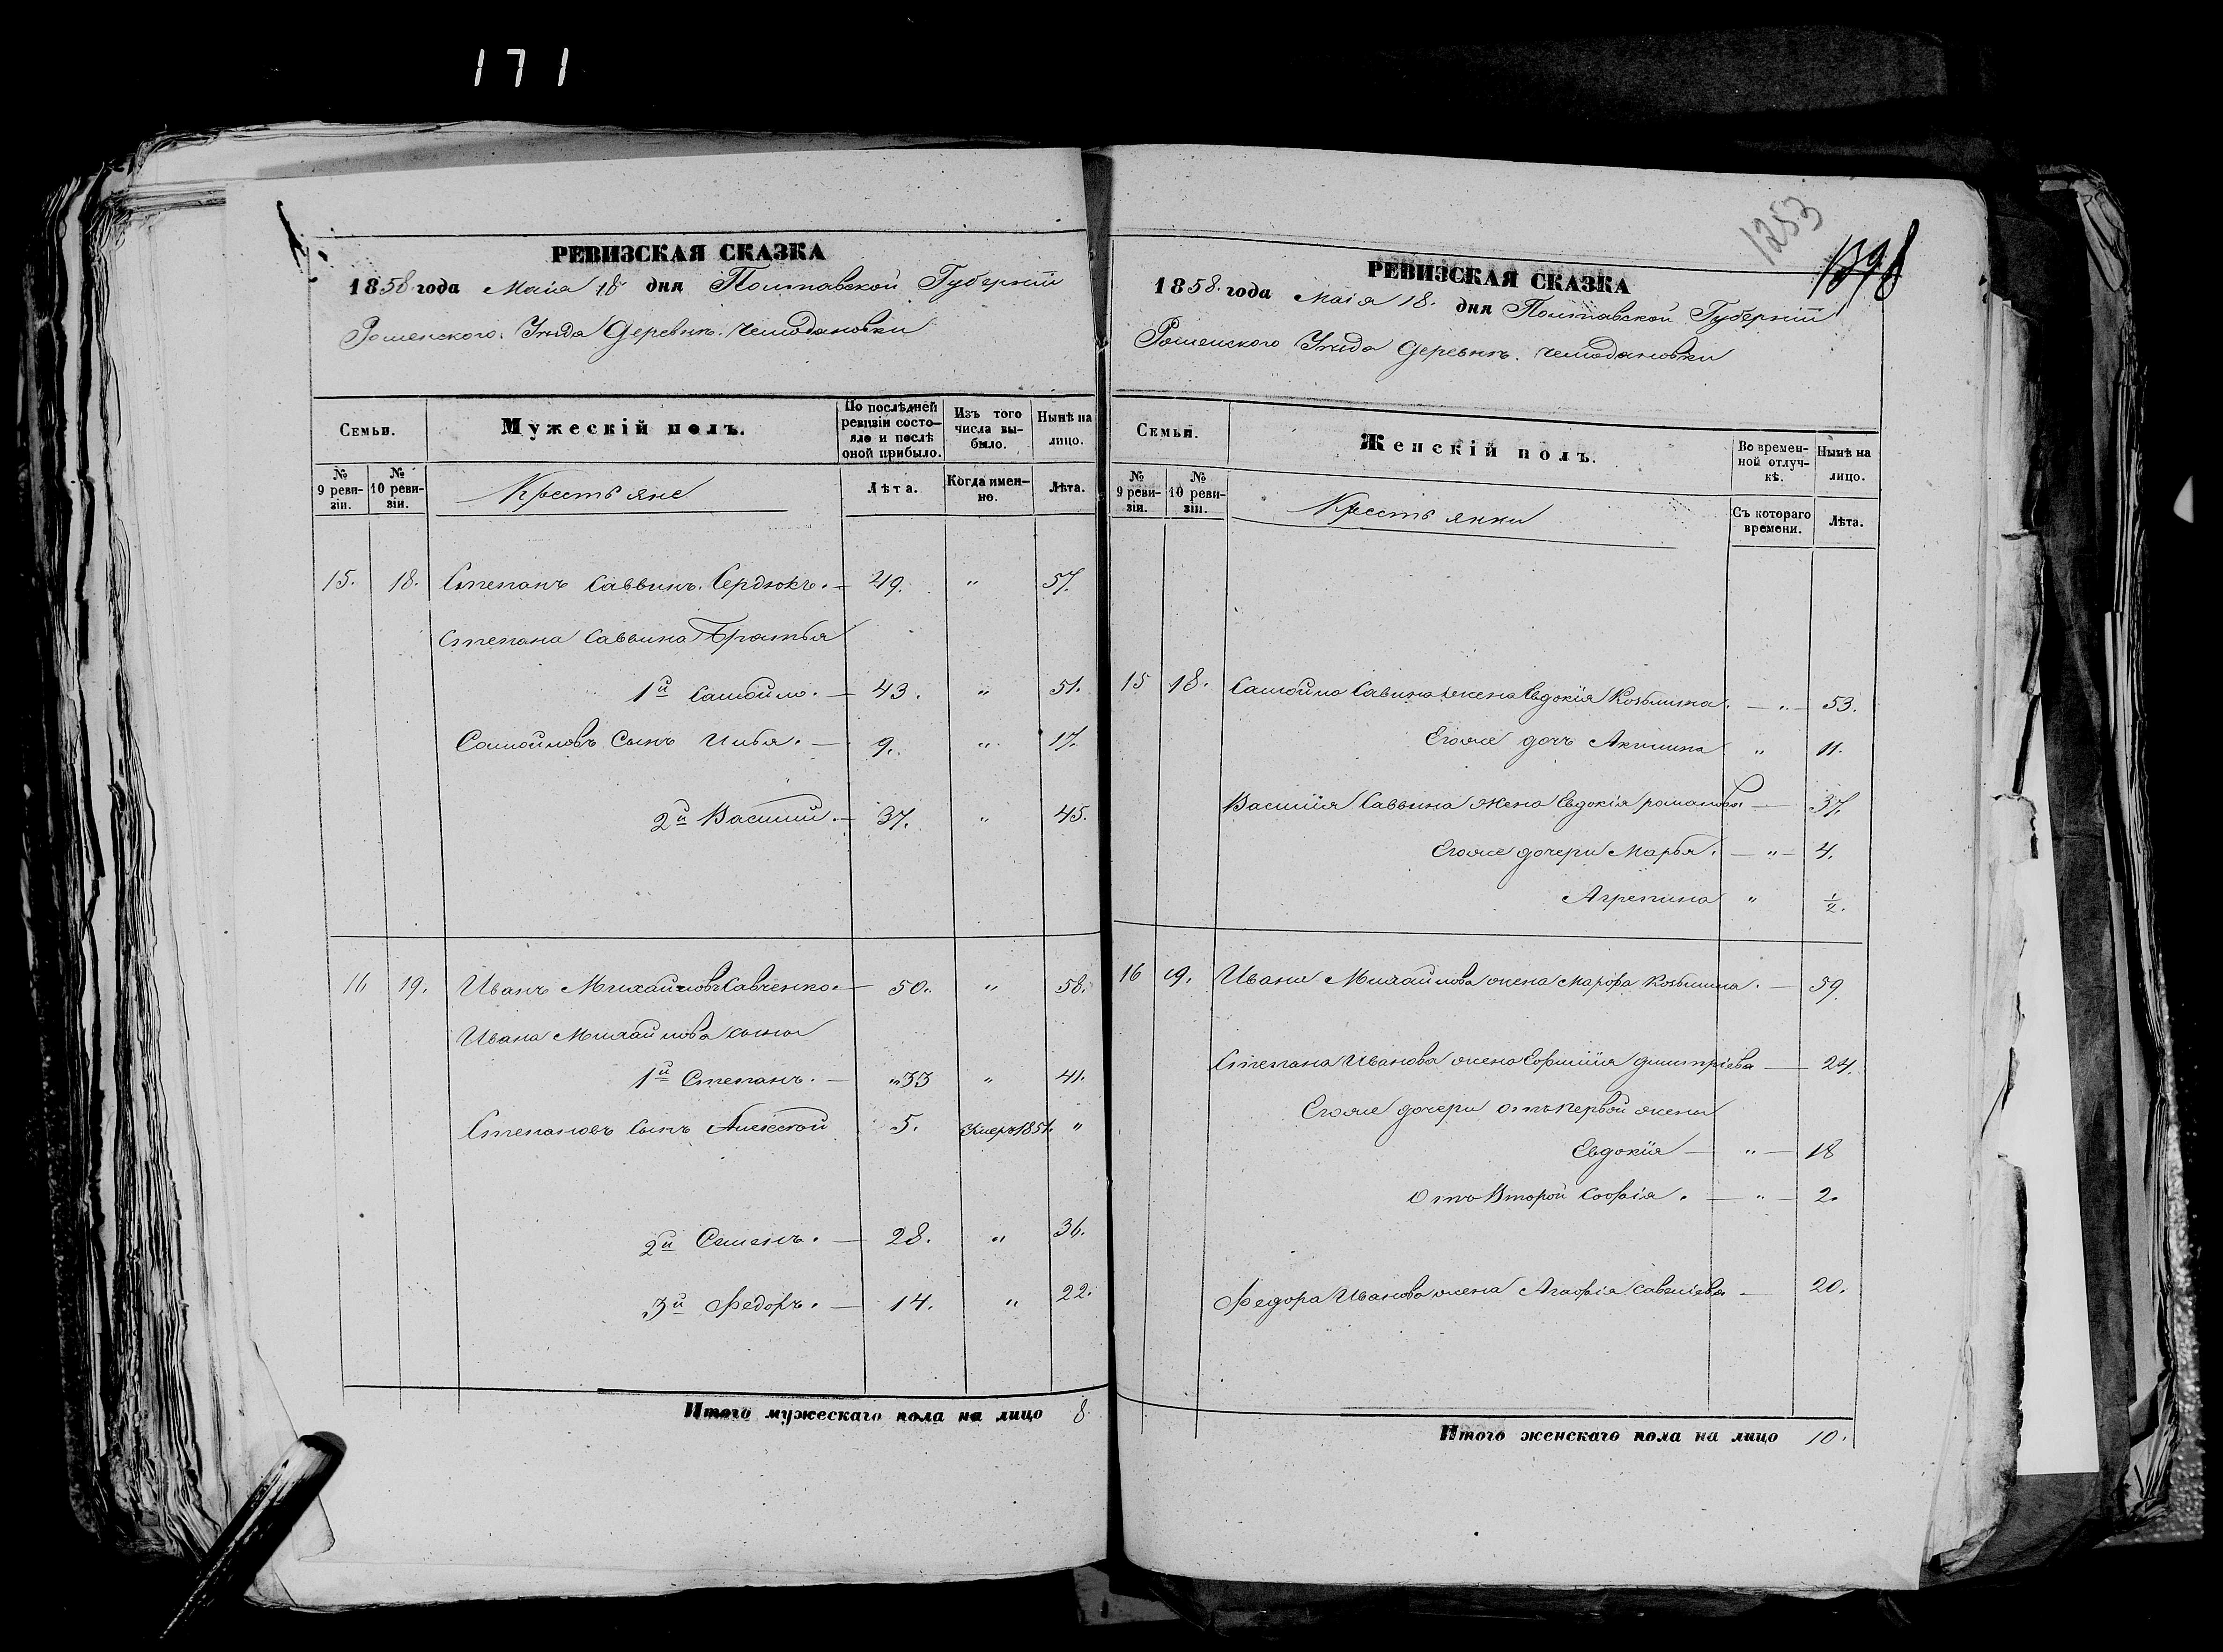 171
РЕВИЗСКАЯ СКАЗКА
1858 года Маія 18 дня Полтавской Губерніи
Роменского Уезда Деревнѣ Чемодановки
Семьи.
Мужескій полъ.
По послѣдней ревизіи состояло и послѣ оной прибыло.
Изъ того числа выбыло.
Нынѣ на лицо.
№ 9 ревизіи.
№ 10 ревизіи.
Крестьяне
Лѣта.
Когда именно.
Лѣта.
15. 18. Степанъ Саввинъ Сердюкъ. — 49. " 57.
Степана Саввина Братья
1й Самойло. — 43. " 51.
Самойловъ Сынъ Илья. — 9. " 17.
2й Василий. — 37. " 45.
16 19. Иванъ Михайловъ Савченко. — 50. " 58.
Ивана Михайлова сыны
1й Степанъ. — "33 " 41.
Степановъ Сынъ Алексей 5. Умеръ 1851. "
2й Семенъ. — 28. " 36.
3й Федоръ. — 14. " 22.
Итого мужескаго пола на лицо 8
1253
РЕВИЗСКАЯ СКАЗКА
1858. года Маія 18. дня Полтавской Губерніи
Роменского Уезда Деревнѣ. Чемодановки
Семьи.
Женскій полъ.
Во временной отлучкѣ.
Нынѣ на лицо.
№ 9 ревизіи.
№ 10 ревизіи.
Крестьянки
Съ котораго времени.
Лѣта.
15 18. Самойла Савина жена Евдокія Козьмина. — " — 53.
Егоже дочь Акилина " 11.
Василія Саввина жена Евдокія романова — 37.
Егоже дочери Марья. — " — 4.
Агрепина " 1/2.
16 19. Ивана Михайлова жена Марфа Козьмина. — 59.
Степана Иванова жена Ефимія дмитріева — 24.
Егоже дочери отъ первой жены
Евдокія — " — 18
Отъ Второй Софія. — " — 2.
Федора Иванова жена Агафія Савеліева — 20.
Итого женскаго пола на лицо 10.